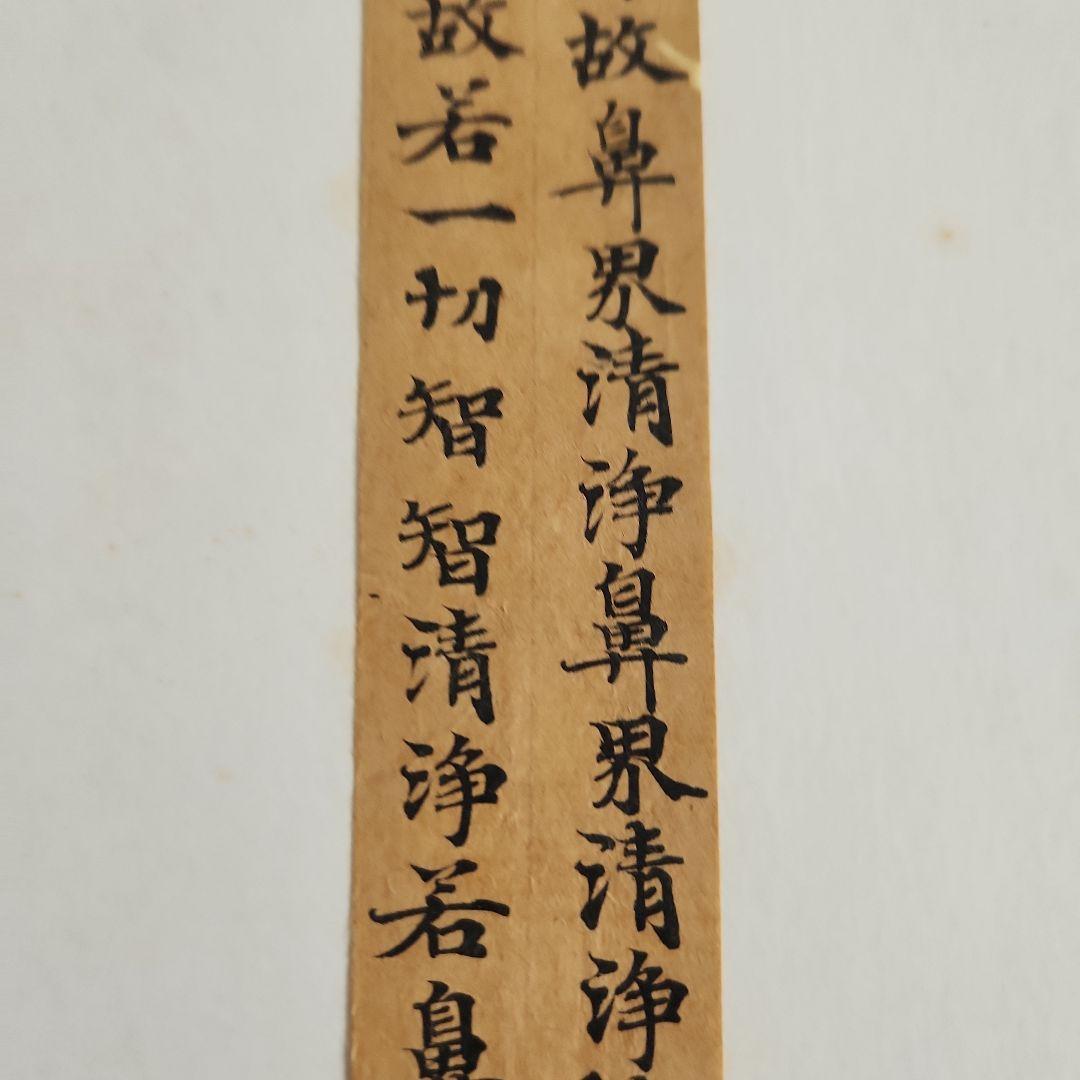 故鼻界清浄鼻界清浄
故若一切智智清浄若鼻